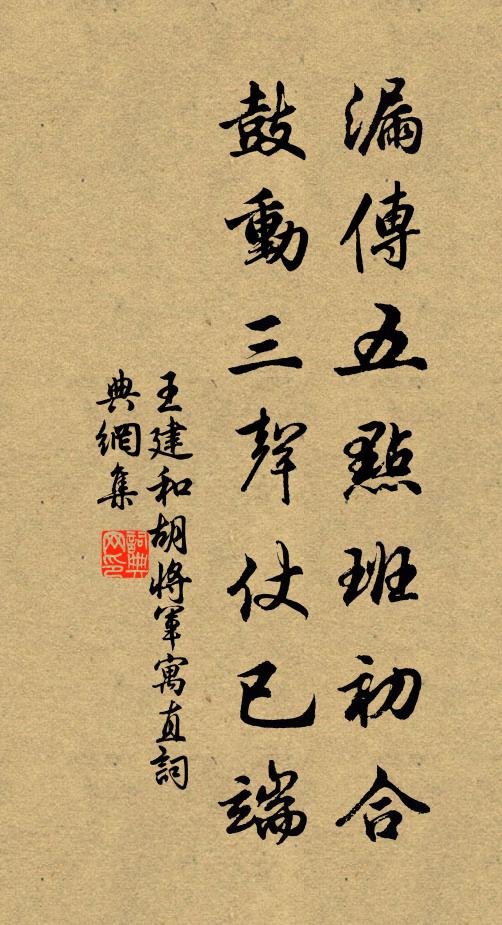 漏傳五點班初合
鼓動三聲仗已端
王建和胡將軍寓直詞
典網集
詞典网印